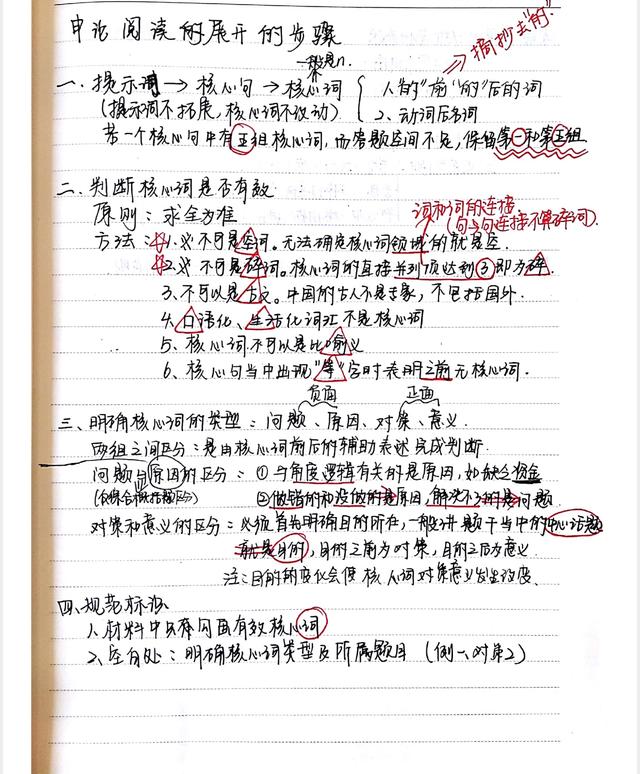 申论阅读的展开的步骤
一般是n.
⇒ 摘抄去"的".
一. 提示词 → 核心句 → 核心词 { 1、"的"前"的"后的词
(提示词不拓展, 核心词不改动) 2、动词后名词
若一个核心句中有五组核心词, 而答题空间不足, 保留第一和第五组
二. 判断核心词是否有效
原则: 求全为准
词和词的连接
(句与句连接不算碎词)
方法: 1. 不可是空词. 无法确定核心词领域的就是空.
2. 不可是碎词。核心词的直接并列项达到③即为碎
3. 不可以是古文。中国的古人不是专家, 不包括国外.
4. 口语化、生活化词汇不是核心词
5、核心词不可以是比喻义
6、核心句当中出现"等"字时表明之前无核心词.
负面 正面
三、明确核心词的类型: 问题、原因、对策、意义
两组之间区分: 是由核心词前后的辅助表述完成判断.
问题与原因的区分: ① 与角度逻辑有关的是原因, 如缺乏资金
②做错的和没做的是原因, 解决不了的是问题
对策和意义的区分: 必须首先明确目的所在, 一般讲题干当中的中心话题
就是目的, 目的之前为对策, 目的之后为意义
注: 目的的变化会使核心词对策意义发生改变.
四、规范标识
1、材料中只需勾画有效核心词
2、空白处: 明确核心词类型及所属题目 (例一、对策2)